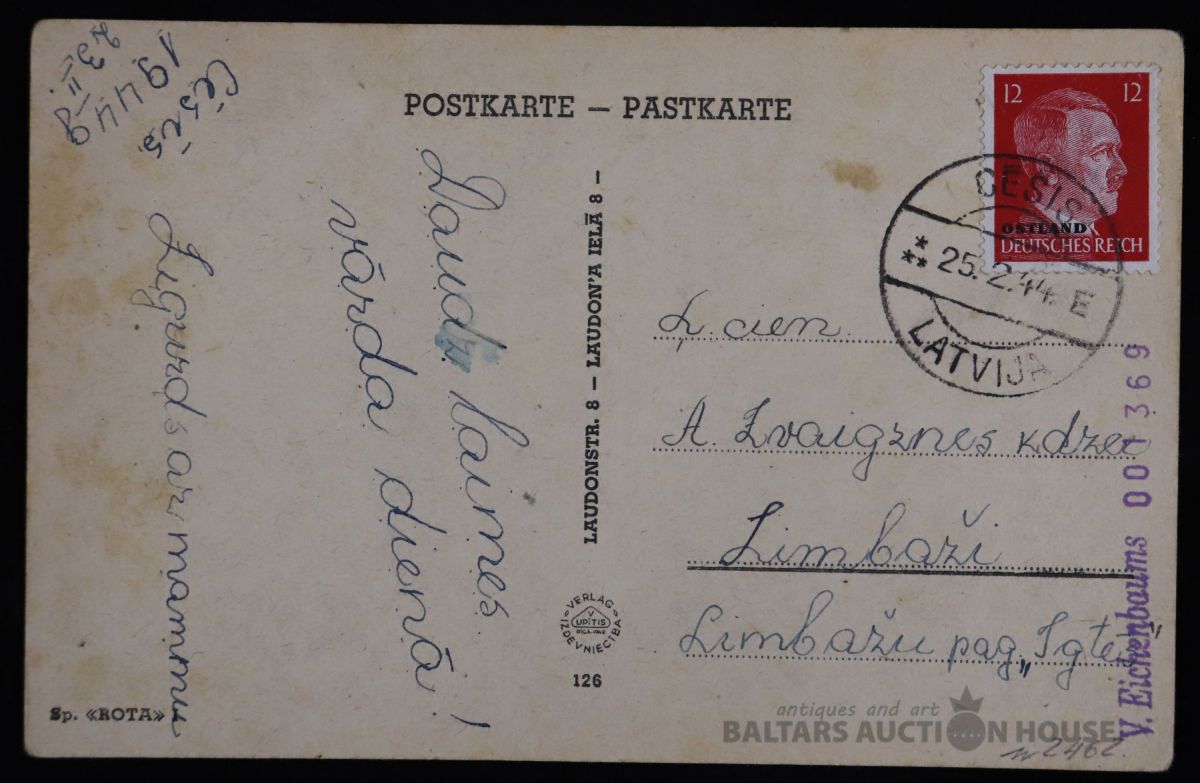 POSTKARTE — PASTKARTE
Cēsīs
1944 g
23 II
Daudz laimes
vārda dienā!
Zigurds ar mammu
LAUDONSTR. 8 — LAUDON'A IELĀ 8 —
VERLAG
V
UPĪTIS
RĪGA-1942
IZDEVNIECĪBA
126
Sp. «ROTA»
12 12
OSTLAND
DEUTSCHES REICH
CĒSIS
25.2.44. E
LATVIJA
Ļ. cien.
A. Zvaigznes kdzei
Limbaži
Limbažu pag.
V. Eichenbaums 001369
antiques and art
BALTARS AUCTION HOUSE
2462